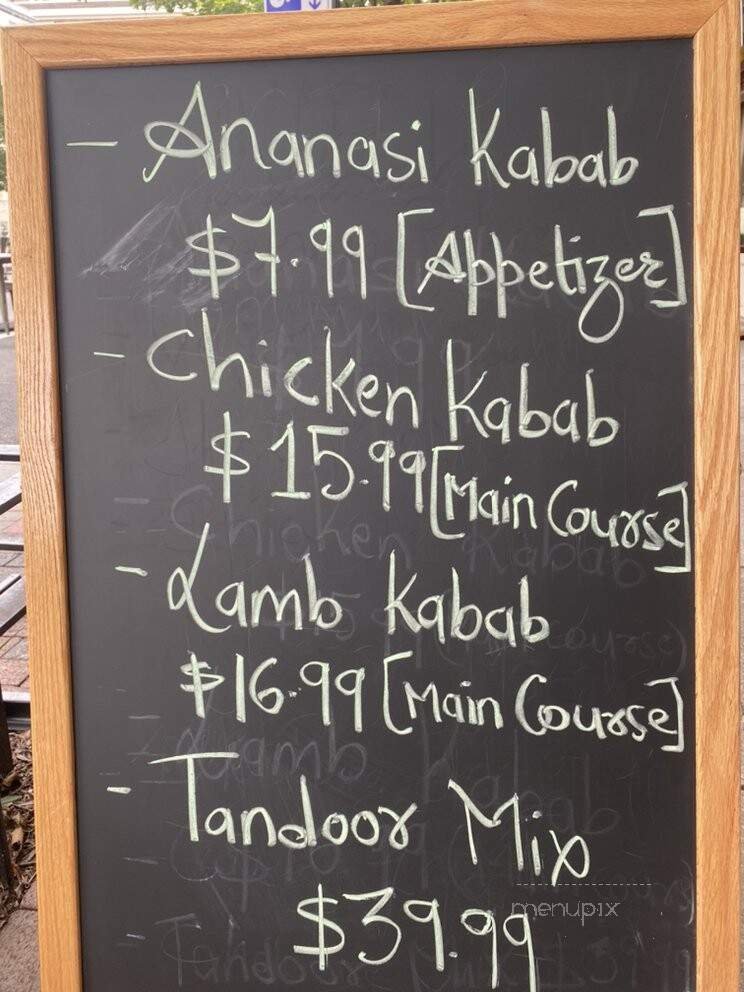 - Ananasi Kabab
$7.99 [Appetizer]
- Chicken Kabab
$15.99 [Main Course]
- Lamb Kabab
$16.99 [Main Course]
- Tandoor Mix
$39.99
menupix